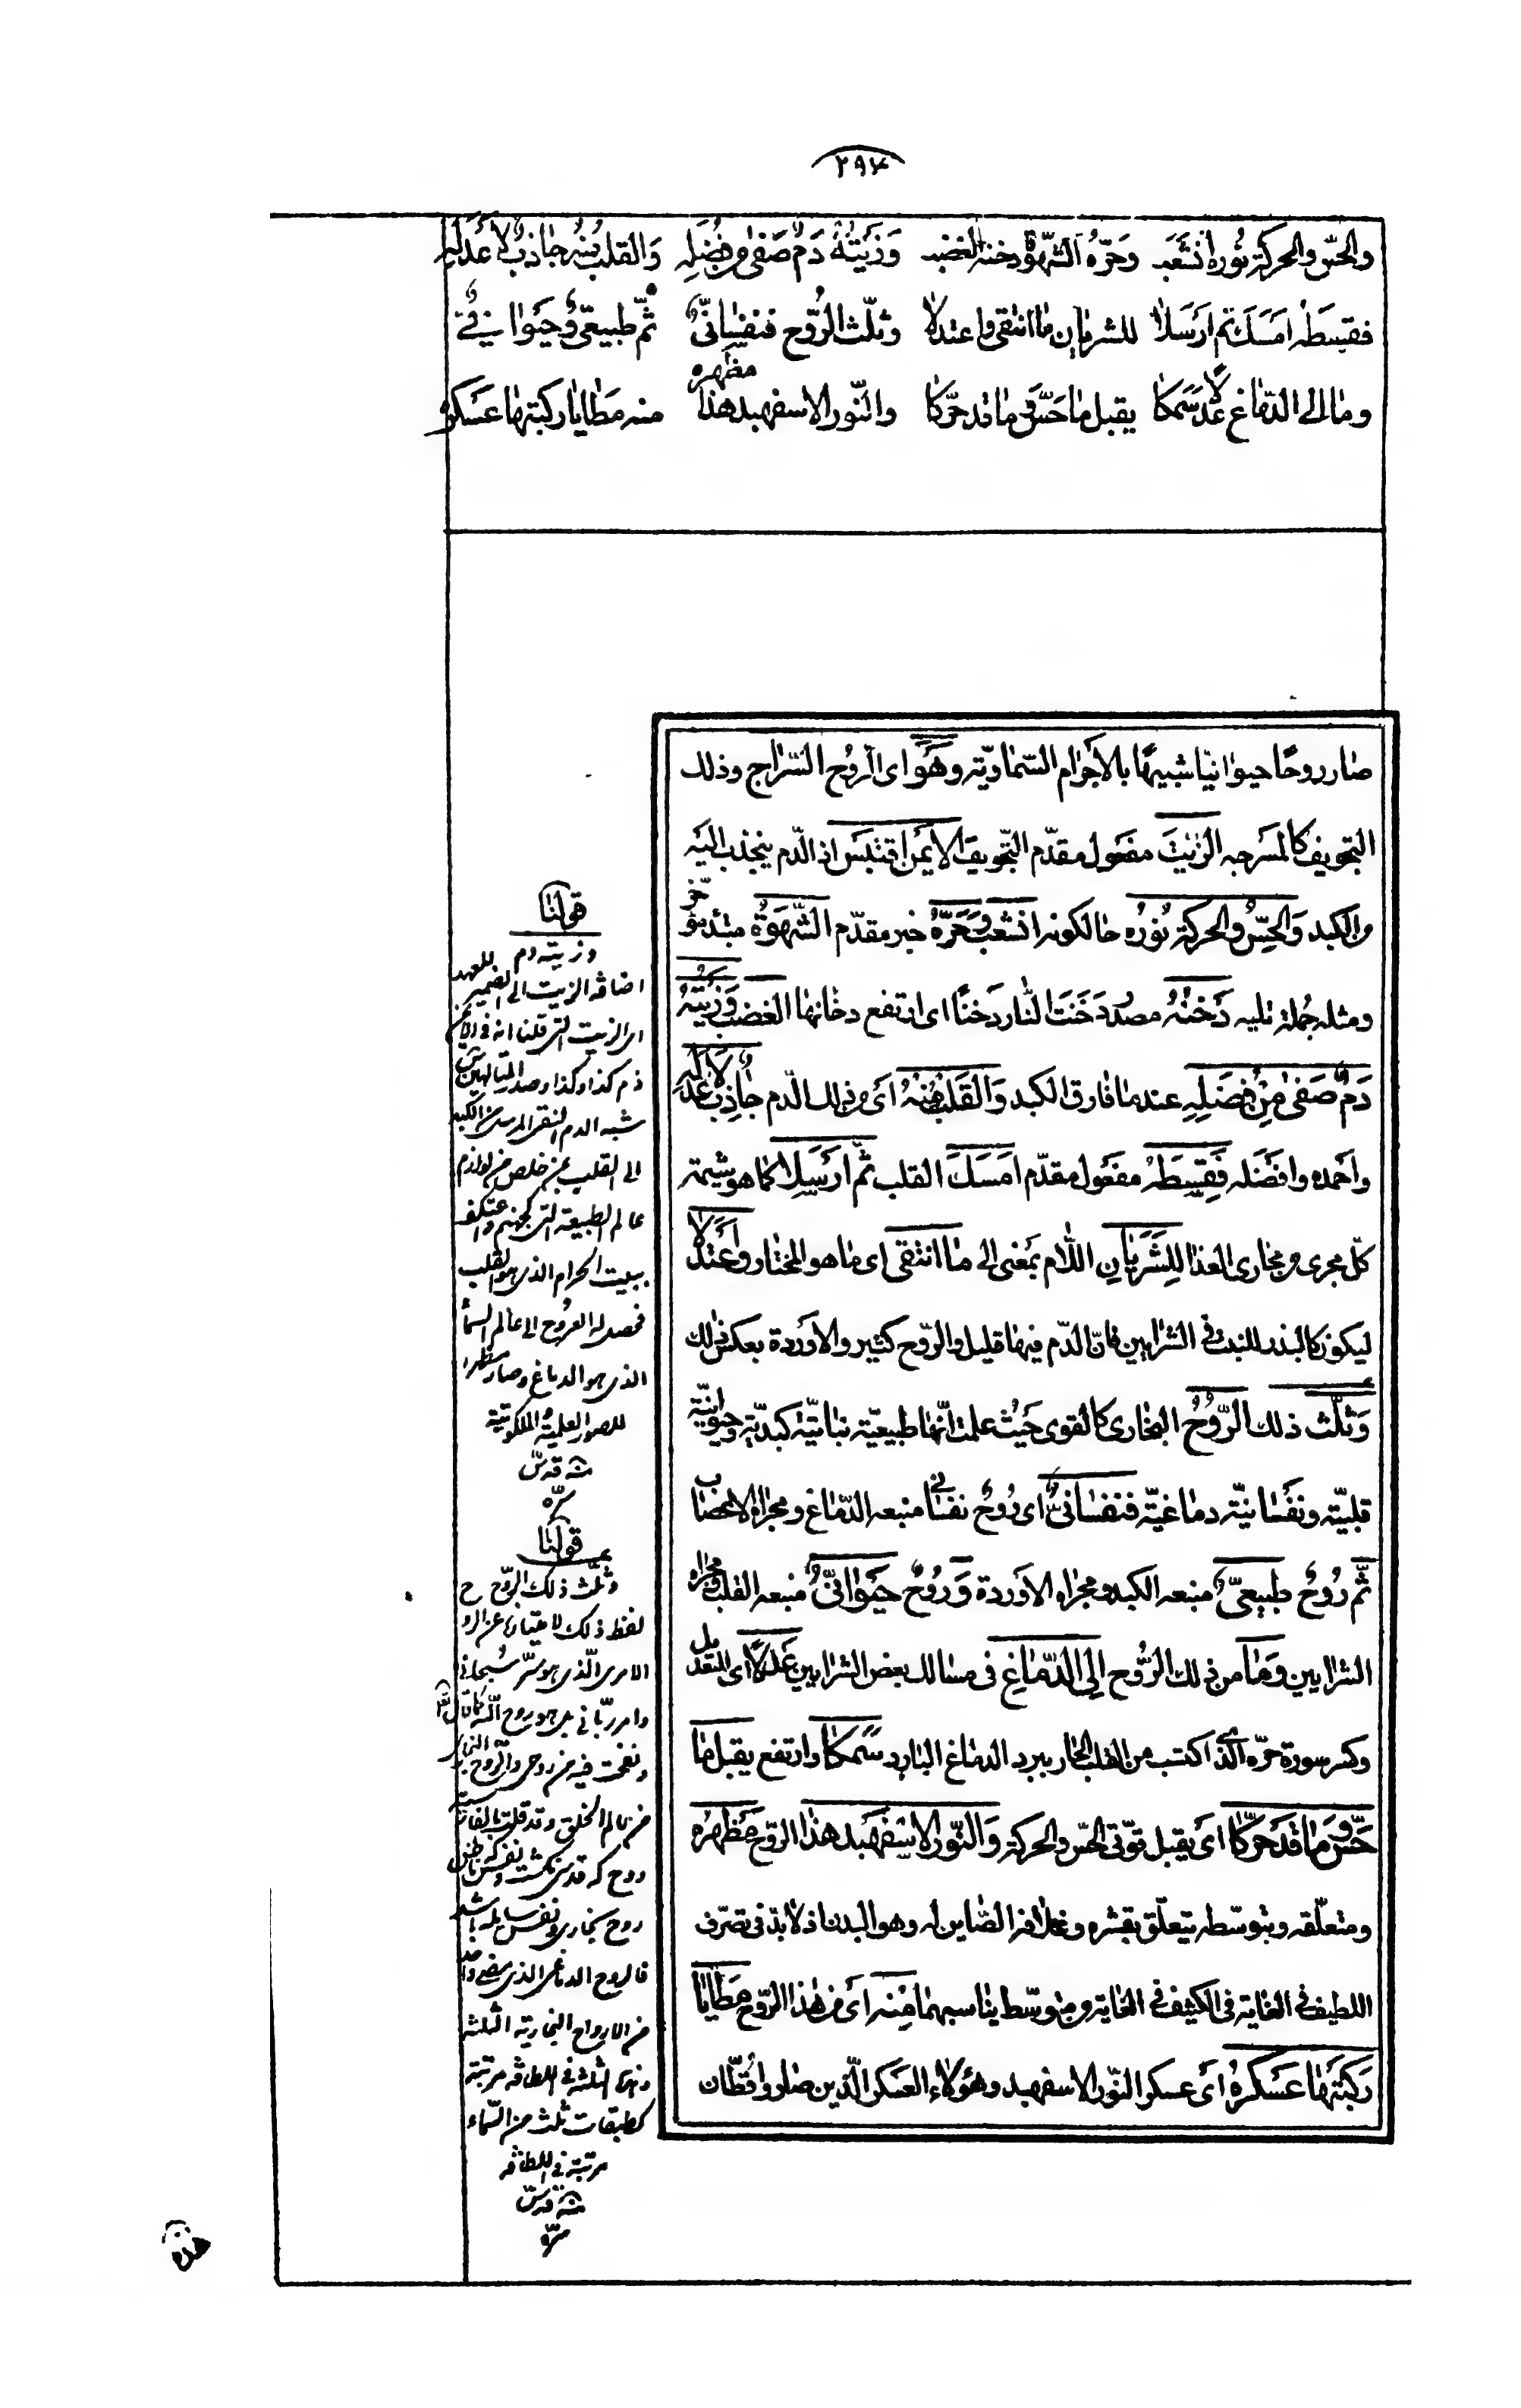 ٢٩٤
والحسّ والحركة نوره انشعب وحرّه الشّهوة دخنه الغضب وزيته دم صفى من فضله والقلب منه جاذب لاعدله
فقسطه امسك ثم ارسلا للشريان ما انتقى واعتدلا وثلّث الرّوح فنفسانىّ ثمّ طبيعىّ وحيوانىّ
وما الى الدّماغ عدلا سمكا يقبل ما حسّ وما قد حرّكا والنّور الاسفهبد هذا مظهره منه مطايا ركبتها عسكره
صار روحا حيوانيا شبيها بالاجرام السّماويّة وهو اى الروح السّراج وذلك
التجويف كالمسرجه الزّيت مفعول مقدّم التّجويف الايمن اقتبس اذ الدّم ينجذب اليه
من الكبد والحسّ والحركة نوره حالكونه انشعب وحرّه خبر مقدّم الشّهوة مبتدء مؤخّر
ومثله جملة تليه دخنه مصدر دخنت النّار دخنا اى ارتفع دخانها الغضب وزيته
دم صفى من فضله عند ما فارق الكبد والقلب منه اى من ذلك الدّم جاذب لاعدله
واحمده وافضله فقسطه مفعول مقدّم امسك القلب ثمّ ارسلا كما هو شيمة
كلّ مجرى من مجارى الغذا للشّريان اللّام بمعنى الى ما انتقى اى ما هو المختار واعتدلا
ليكون كالبذر للنبت فى الشرايين فانّ الدّم فيها قليل والرّوح كثير والاوردة بعكس ذلك
وثلّث ذلك الرّوح البخارى كالقوى حيث علمت انّها طبيعيّة نباتيّة كبديّة وحيوانيّة
قلبيّة ونفسانيّة دماغيّة فنفسانىّ اى روح نفسانى منبعه الدّماغ ومجراه الاعصاب
ثمّ روح طبيعىّ منبعه الكبد ومجراه الاوردة وروح حيوانىّ منبعه القلب ومجراه
الشرايين وما من ذلك الرّوح الى الدّماغ فى مسالك بعض الشرايين عدلا اى المتعدل
وكسر سورة حرّه الّذى اكتسب من القلب الحار ببرد الدماغ البارد سمكا وارتفع يقبل ما
حسّ وما قد حرّكا اى يقبل قوّتى الحسّ والحركة والنّور الاسفهبد هذا الرّوح مظهره
ومتعلّقه وبتوسّطه يتعلّق بقشره وغلافه الصّاين له وهو البدن اذ لا بدّ فى تصرّف
اللطيف فى الغاية فى الكثيف فى الغاية من متوسّط يناسبهما منه اى من هذا الرّوح مطايا
ركبتها عسكره اى عسكر النّور الاسفهبد وهؤلاء العسكر الّذين صاروا قطّان
قولنا
وزيته دم
اضافه الزيت الى الضمير للعهد
اى الزيت التى قلنا انه فى الايمن
دم كذا وكذا وصدر المتالهين
شبه الدم النقى المرسل من الكبد
الى القلب بمن خلص من لوازم
عالم الطبيعة التى كجهنم واعتكف
ببيت الحرام الذى هو القلب
فحصل له العروج الى عالم السما
الذى هو الدماغ وصار مظهرا
للصور العلمية الملكوتية
منه قدّس
سرّه
قولنا
وثلّث ذلك الرّوح
لفظ ذلك لامتيازها عن الروح
الامرى الّذى هو سرّ سبحانى
وامر ربّانى بل هو روح اللّه كما قال
ونفخت فيه من روحى والرّوح البخارى
من عالم الخلق وقد قلت بالفارسية
روح كه قدسى نگشت ونفس كه ناطق
روح بخارى ونفس سايله باشد
فالروح الدماغى الذى
من الارواح البخارية الثلثة
وهذه الثلثة فى اللطافة مرتبة
كطبقات ثلث من السّماء
مرتبة فى اللطافة
منه قدّس
سرّه
هذه